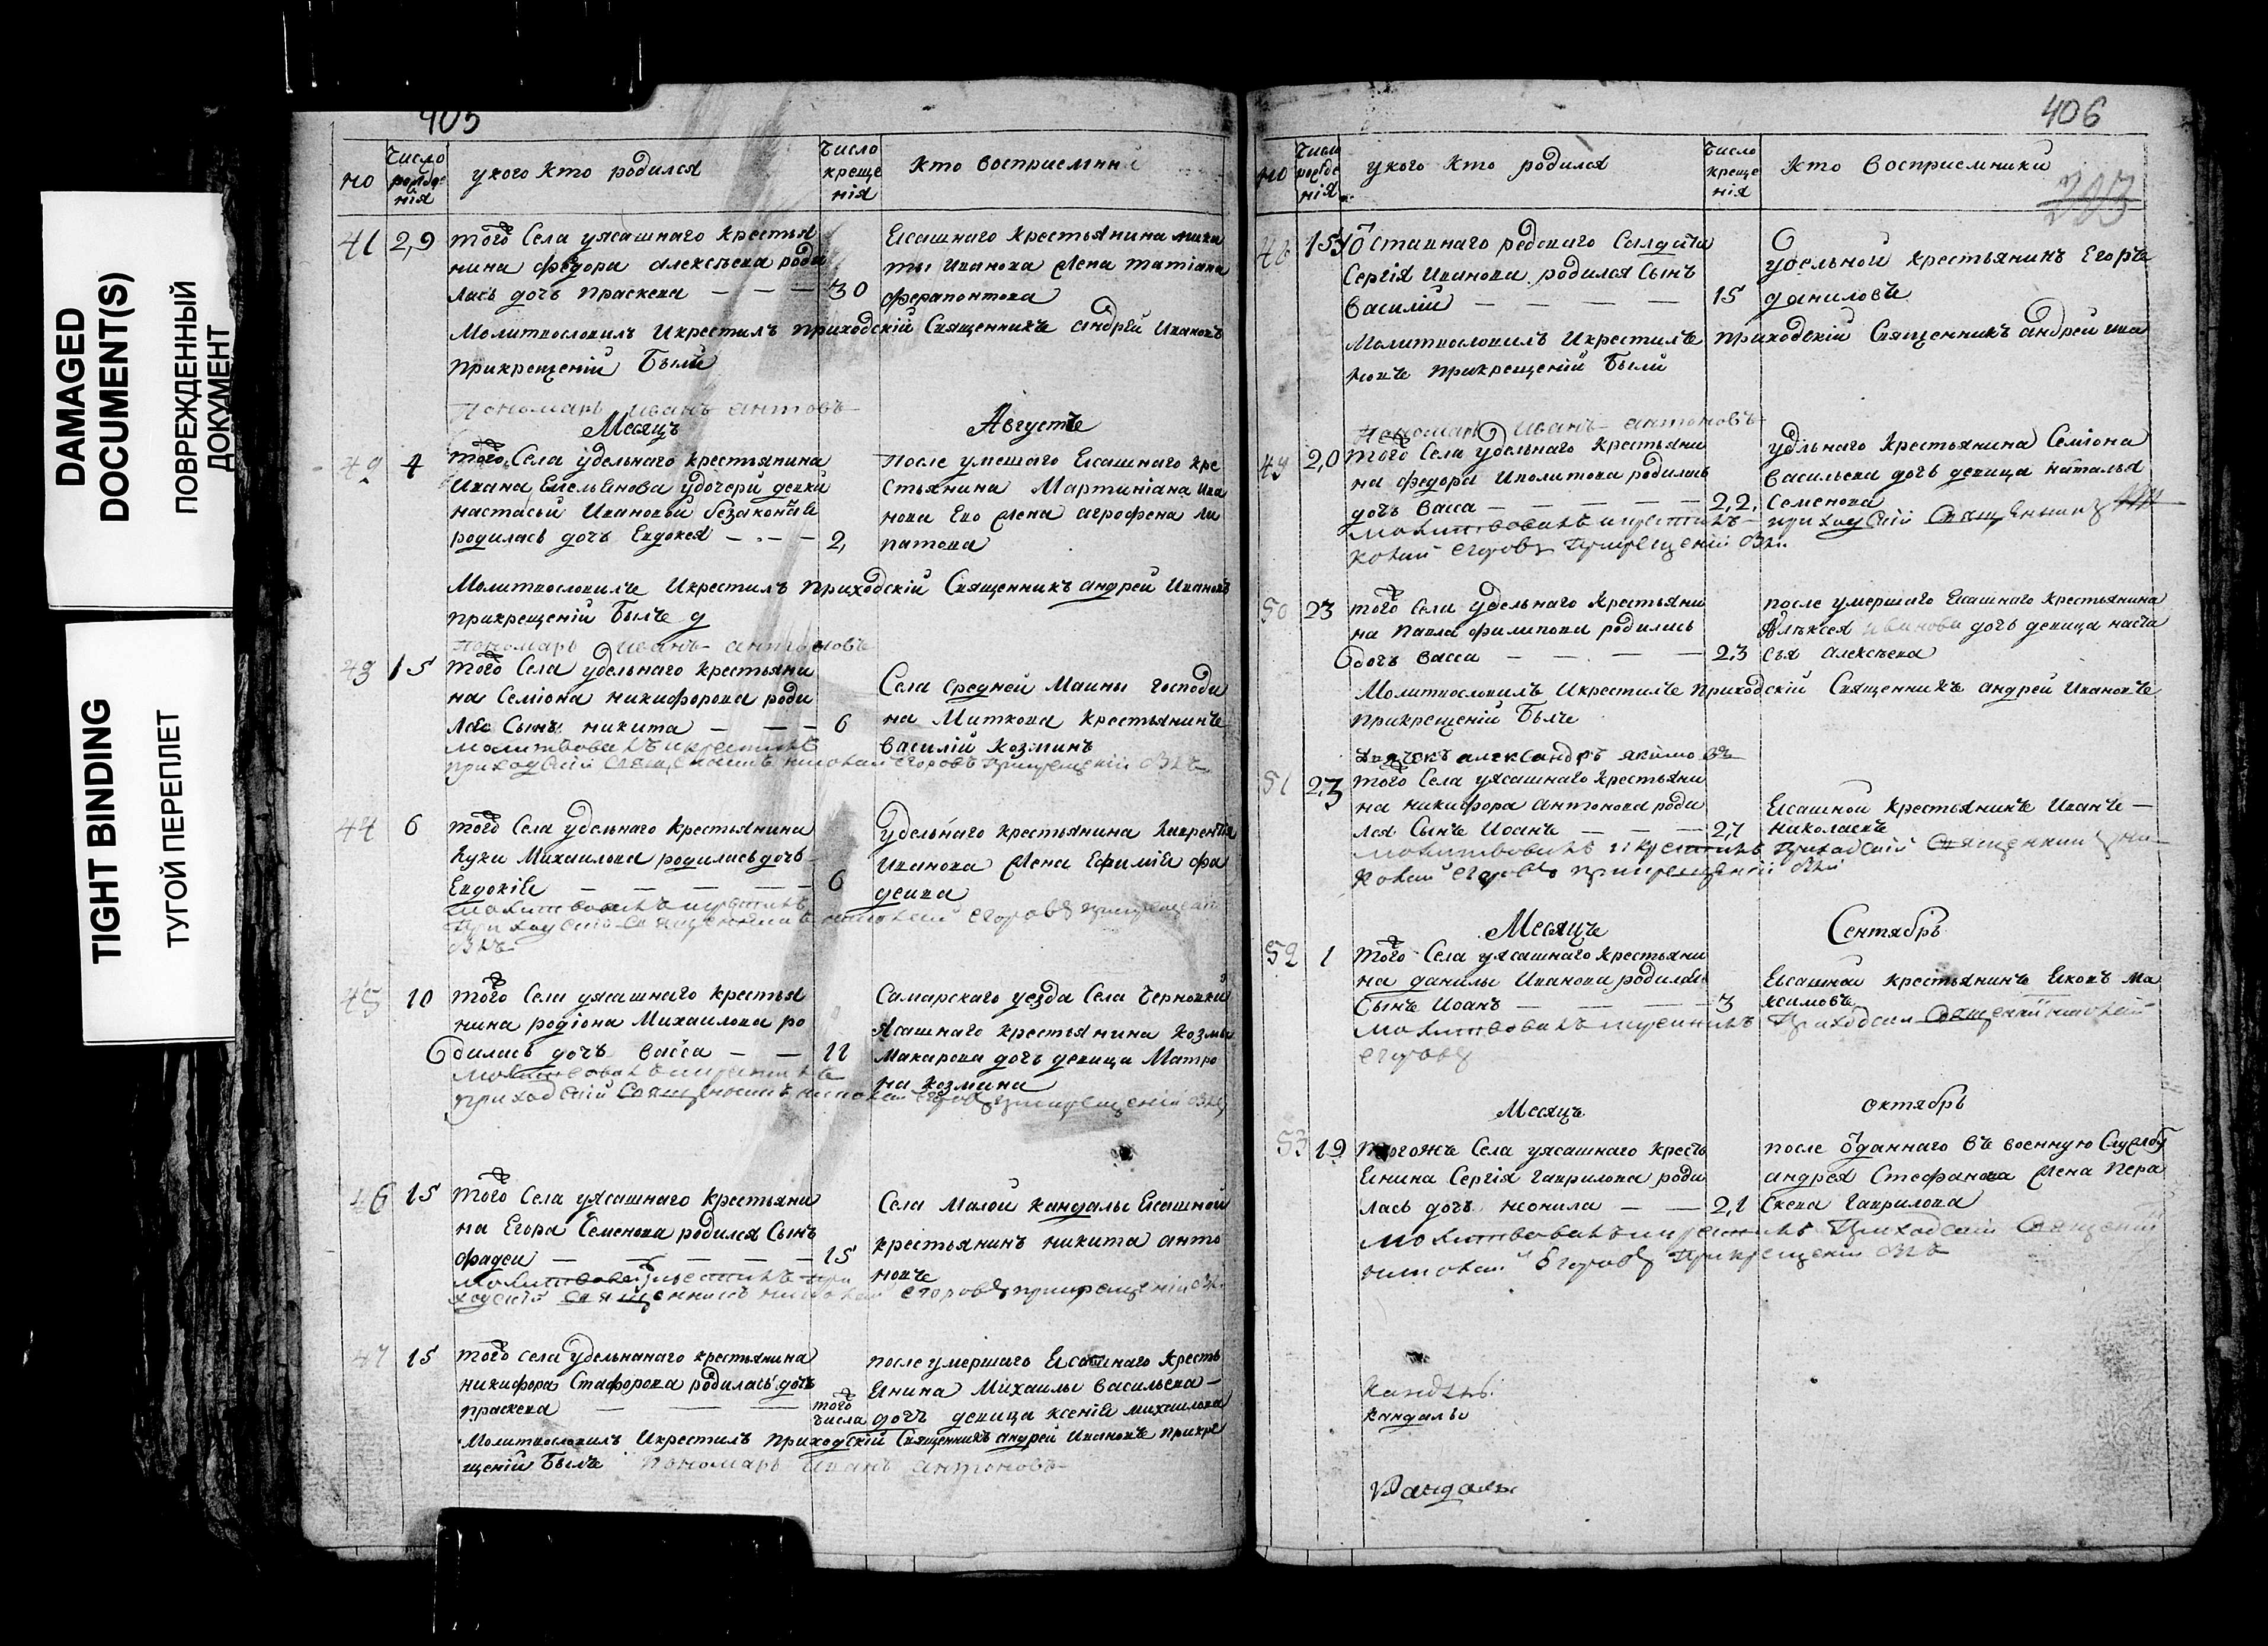 DAMAGED
DOCUMENT(S)
ПОВРЕЖДЕННЫЙ
ДОКУМЕНТ
TIGHT BINDING
ТУГОЙ ПЕРЕПЛЕТ
405
но
число рожде нія
у кого кто родился
число креще нія
кто восприемники
41 29 того Села уясашнаго крестья
нина федора алексѣева роди
лась дочь праскева — — — 30
Ясашнаго крестьянина ники
ты Иванова жена татиана
ферапонтова
Молитвословилъ Икрестилъ приходскій Священникъ андрей Ивановъ
прикрещеніи Были
Пономарь иванъ антовъ
Месяцъ Августъ
42 4 того Села удельнаго крестьянина
Ивана Емельянова удочери девки
настасьи Ивановой безаконнѣ
родилась дочь Евдокея — — 2
После умешаго Ясашнаго кре
стьянина Мартиніана Ива
нова Его жена агрофена ли
патова
Молитвословилъ Икрестилъ приходскій Священникъ андрей Ивановъ
прикрещеніи Былъ
Пономарь иванъ антоновъ
43 15 того Села удельнаго крестьяни
на Семіона никифорова роди
лся Сынъ никита — — — 6
Села средней Маины господи
на Миткова крестьянинъ
василій козминъ
молитвовалъ икрестилъ
приходскій священникъ николай егоровъ прикрещеніи былъ
44 6 того Села удельнаго крестьянина
луки Михаилова родилась дочь
Евдокія — — — — 6
удельнаго крестьянина лаврентія
Иванова жена Ефимія фа
деива
молитвовалъ икрестилъ
приходскій священникъ николай егоровъ прикрещеніи
былъ
45 10 того Села уясашнаго крестья
нина родіона Михаилова ро
дилась дочь васса — — 11
Самарскаго уезда Села Черновки
Ясашнаго крестьянина козмы
Макарова дочь девица Матро
на козмина
молитвовалъ икрестилъ
приходскій священникъ николай егоровъ прикрещеніи былъ
46 15 того Села уясашнаго крестьяни
на Егора Семенова родился Сынъ
фадеи — — — — 15
Села Малой кандалы Ясашной
крестьянинъ никита анто
новъ
молитвовалъ икрестилъ при
ходскій священникъ николай егоровъ прикрещеніи былъ
47 15 того села удельнанаго крестьянина
никифора Стафорова родилась дочь
праскева — — — того числа
после умершаго Ясашнаго кресть
янина Михаилы васильева —
дочь девица ксенія михаилова
Молитвословилъ Икрестилъ приходскій Священникъ андрей Ивановъ прикре
щеніи Былъ Пономарь Иванъ антоновъ
406
203
но
число рожде нія
у кого кто родился
число креще нія
кто восприемники
48 15 Сергія Иванова родился Сынъ
василій — — — — 15
удельной крестьянинъ Егоръ
даниловъ
Молитвословилъ Икрестилъ приходскій Священникъ андрей ива
новъ прикрещеніи Были
Пономарь Иванъ антоновъ
49 20 того Села удельнаго крестьяни
на федора Иполитова родилась
дочь васса — — — — 22
удѣльнаго крестьянина Семіона
васильева дочь девица наталья
Семенова
молитвовалъ икрестилъ приходскій Священникъ ни
колай егоровъ прикрещеніи былъ
50 23 того Села удельнаго крестьяни
на Павла филипова родилась
дочь васса — — — — 23
после умершаго Ясашнаго крестьянина
Алѣксея иванова дочь девица наста
сья алексѣева
Молитвословилъ Икрестилъ приходскій Священникъ андрей Ивановъ
прикрещеніи Былъ
Дьячекъ александръ якимовъ
51 23 того Села уясашнаго крестьяни
на никифора антонова роди
лся Сынъ Иоанъ — — — 27
Ясашной крестьянинъ Иванъ —
николаевъ
молитвовалъ икрестилъ приходскій Священникъ ни
колай егоровъ прикрещеніи былъ
Месяцъ Сентябрь
52 1 того Села уясашнаго крестьяни
на данилы Иванова родился
Сынъ Иоанъ — — — — 3
Ясашной крестьянинъ Яковъ Ма
ксимовъ
молитвовалъ икрестилъ приходскій Священникъ николай
егоровъ
Месяцъ октябрь
53 19 тогожъ Села уясашнаго кресть
янина Сергія гаврилова роди
лась дочь неонила — — 21
после оданнаго въ военную Службу
андрея Стефанова жена Пера
скева гаврилова
молитвовалъ икрестилъ приходскій Священникъ
николай Егоровъ прикрещеніи былъ
кандалы
кандалы
Кандалы